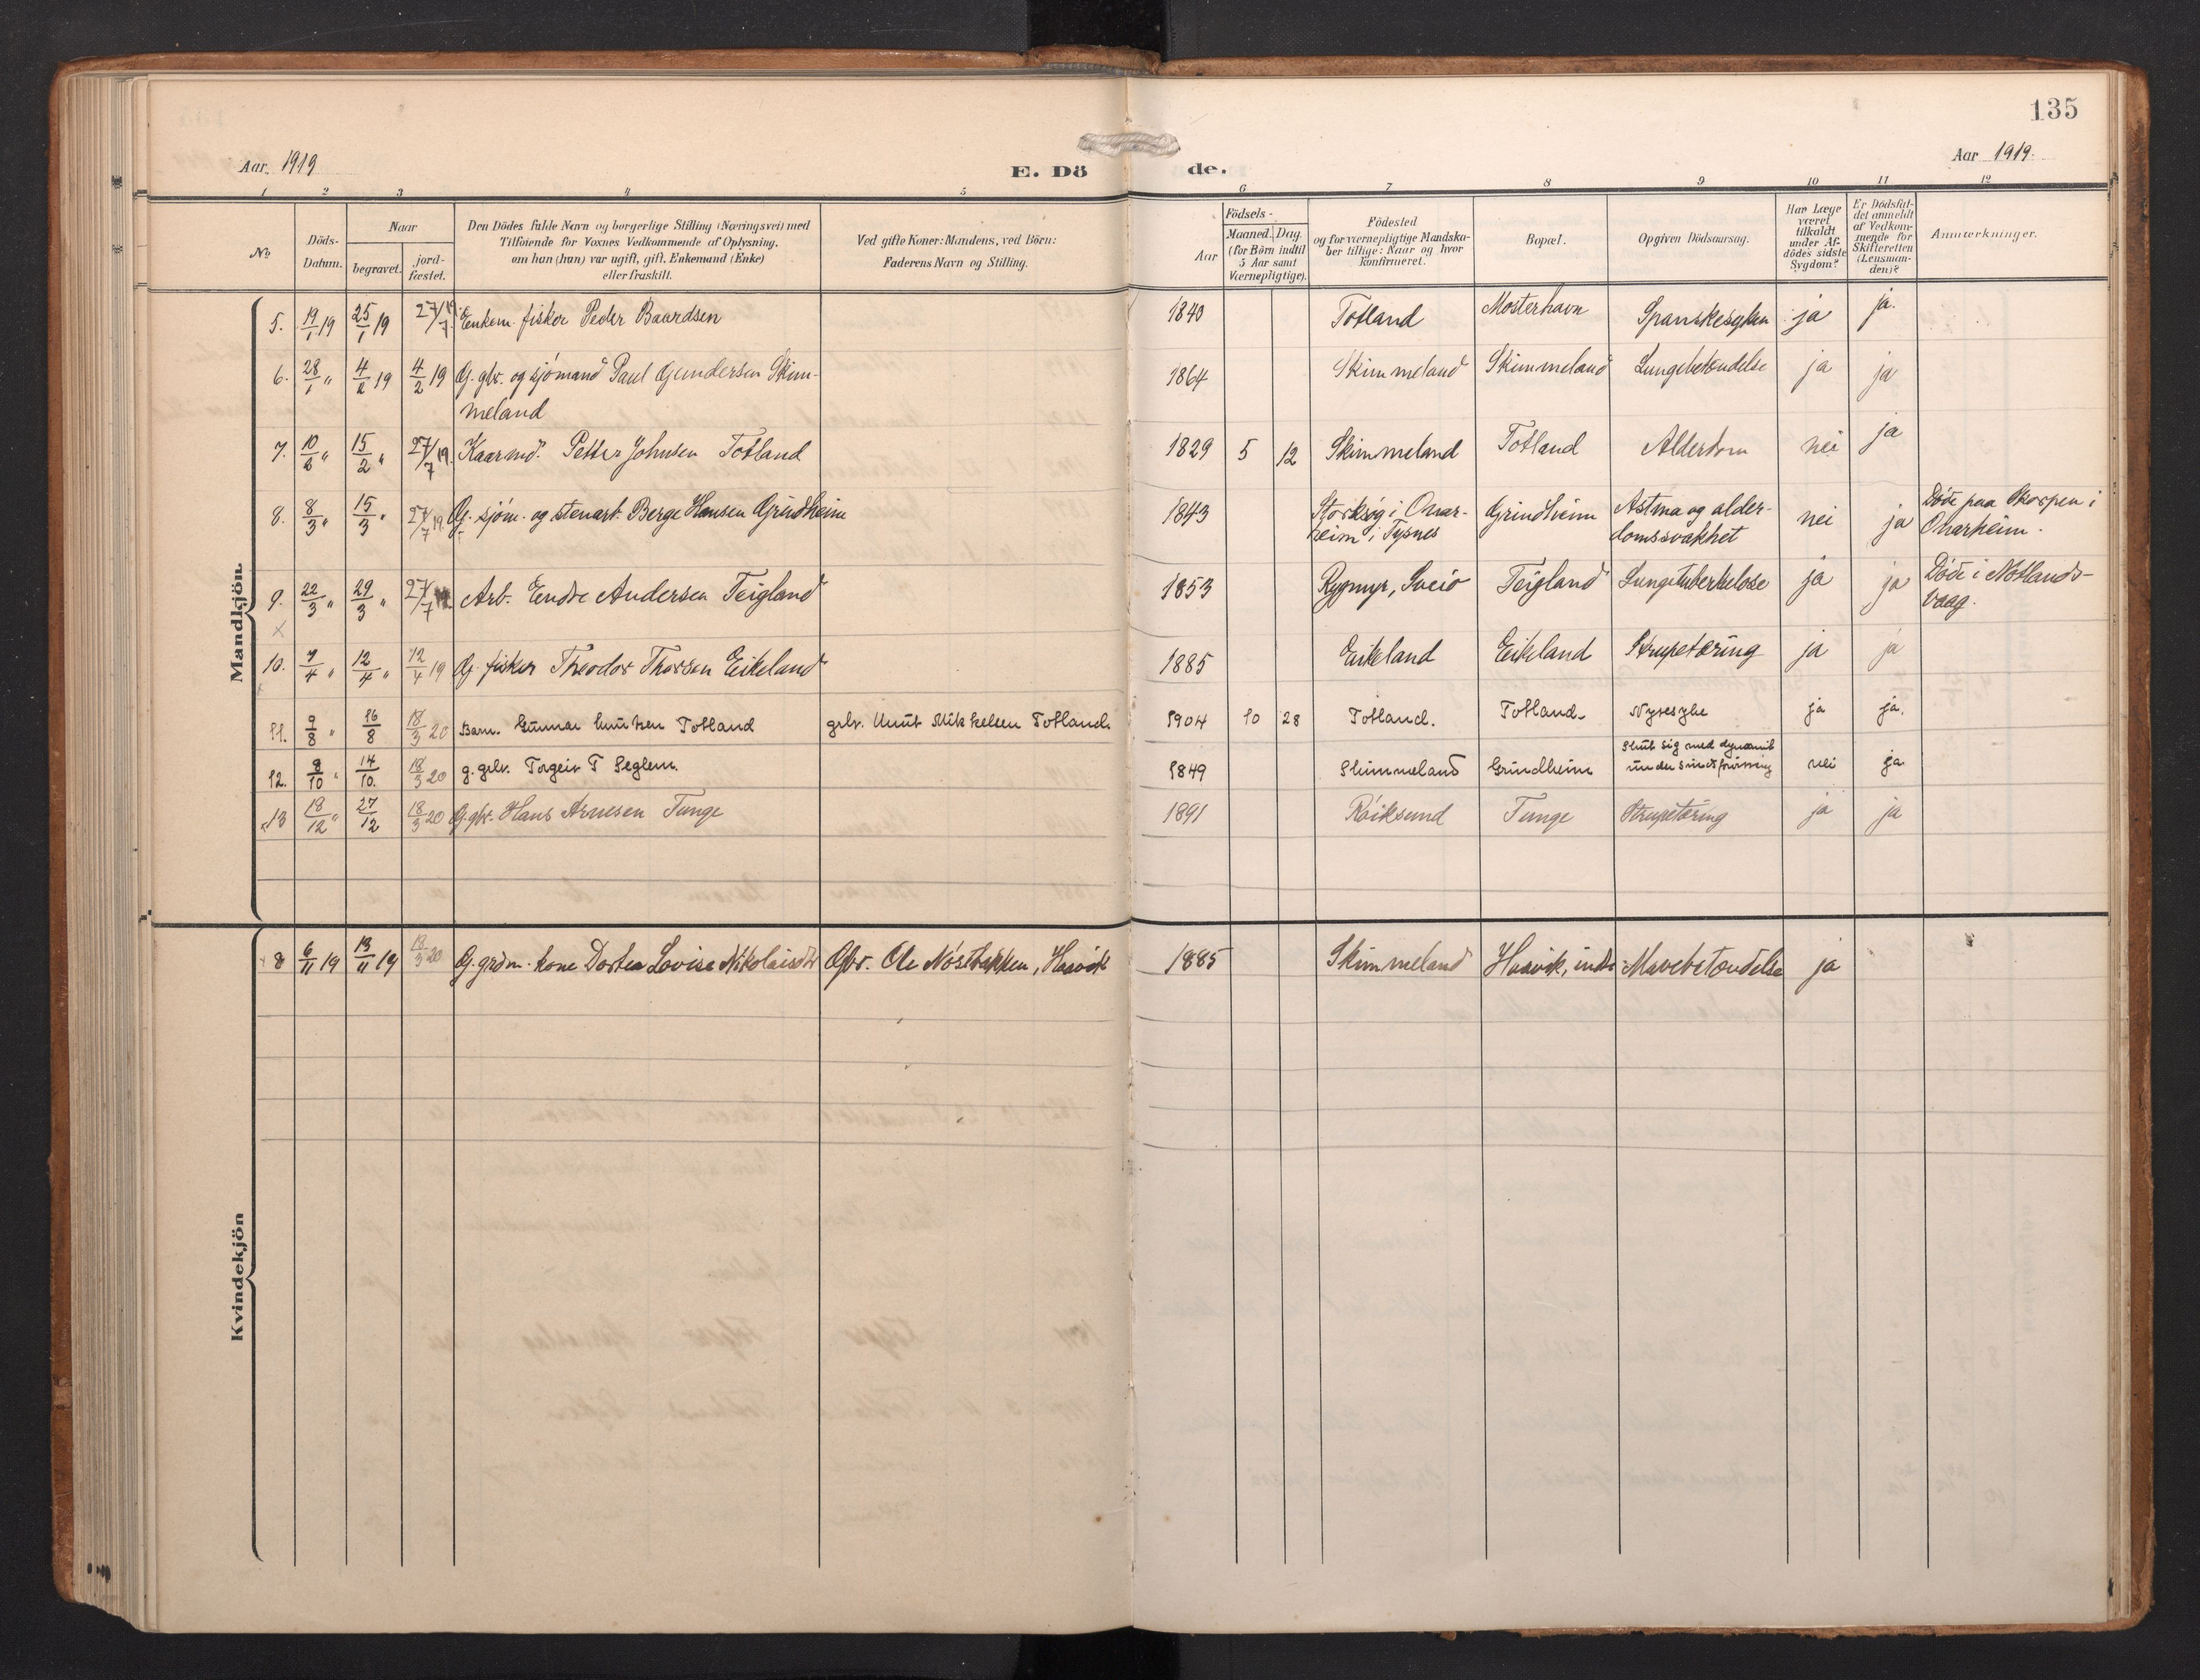 135
Aar 1919
Aar 1919.
E. Dö de.
1 2 3 4 5 6 7 8 9 10 11 12
No
Döds-Datum.
Naar
begravet.
jord-fæstet.
Den Dödes fulde Navn og borgerlige Stilling (Næringsvei) med
Tilföiende for Voxnes Vedkommende af Oplysning,
om han (hun) var ugift, gift, Enkemand (Enke)
eller fraskilt.
Ved gifte Koner: Mandens, ved Börn:
Faderens Navn og Stilling.
Födsels-
Aar
Maaned. Dag.
(for Börn indtil
5 Aar samt
Værnepligtige).
Födested
og for værnepligtige Mandska-
ber tillige: Naar og hvor
konfirmeret.
Bopæl.
Opgiven Dödsaarsag.
Har Læge
været
tilkaldt
under Af-
dödes sidste
Sygdom?
Er Dödsfal-
det anmeldt
af Vedkom-
mende for
Skifteretten
(Lensman-
den)?
Anmærkninger.
Mandkjön.
5. 19/1 19 25/1 19 27/7 19. Enkem. fisker Peder Baardsen 1840 Totland Mosterhavn Spanskesyken ja ja.
6. 28/1 " 4/2 19 4/2 19 G. gbr. og sjömand Paul Gundersen Skim-
meland 1864 Skimmeland Skimmeland Lungebetændelse ja ja
7. 10/2 " 15/2 " 27/7 19. Kaarmd. Petter Johnsen Totland 1829 5 12 Skimmeland Totland Alderdom nei ja
8. 8/3 " 15/3 " 27/7 19. G. sjöm. og stenarb. Berge Hansen Grindheim 1843 i Onar-
heim i Tysnes Grindheim Astma og alder-
domssvakhet nei ja Döde paa Skorpen i
Onarheim.
9. 22/3 " 29/3 " 27/7 Arb. Endre Andersen Teigland 1853 Rygmyr, Sveio Teigland Lungetuberkelose ja ja Döde i Motlands-
vaag.
10. 7/4 " 12/4 " 12/4 19 G. fisker Theodor Thorsen Eikeland 1885 Eikeland Eikeland Strupetæring ja ja
11. 9/8 " 16/8 18/3 20 Barn. Gunnar Knutsen Totland grbr. Knut Mikkelsen Totland. 1904 10 28 Totland. Totland. Nyresyke ja ja.
12. 8/10 " 14/10. 18/3 20 g. grbr. Torgeir T Seglem. 1849 Skimmeland Grindheim Skut sig med dynamit
under sindsforvirring nei ja
13 18/12 " 27/12 18/3 20 G. gbr. Hans Arnesen Tunge 1891 Röiksund Tunge Strupetæring ja ja
Kvindekjön
8 6/11 19 13/11 19 18/3 20 G. grdm. kone Dortea Lovise Nikolaisdtr Gbr. Ole Nöstbakken, Haavik 1885 Skimmeland Haavik, indre Mavebetændelse ja